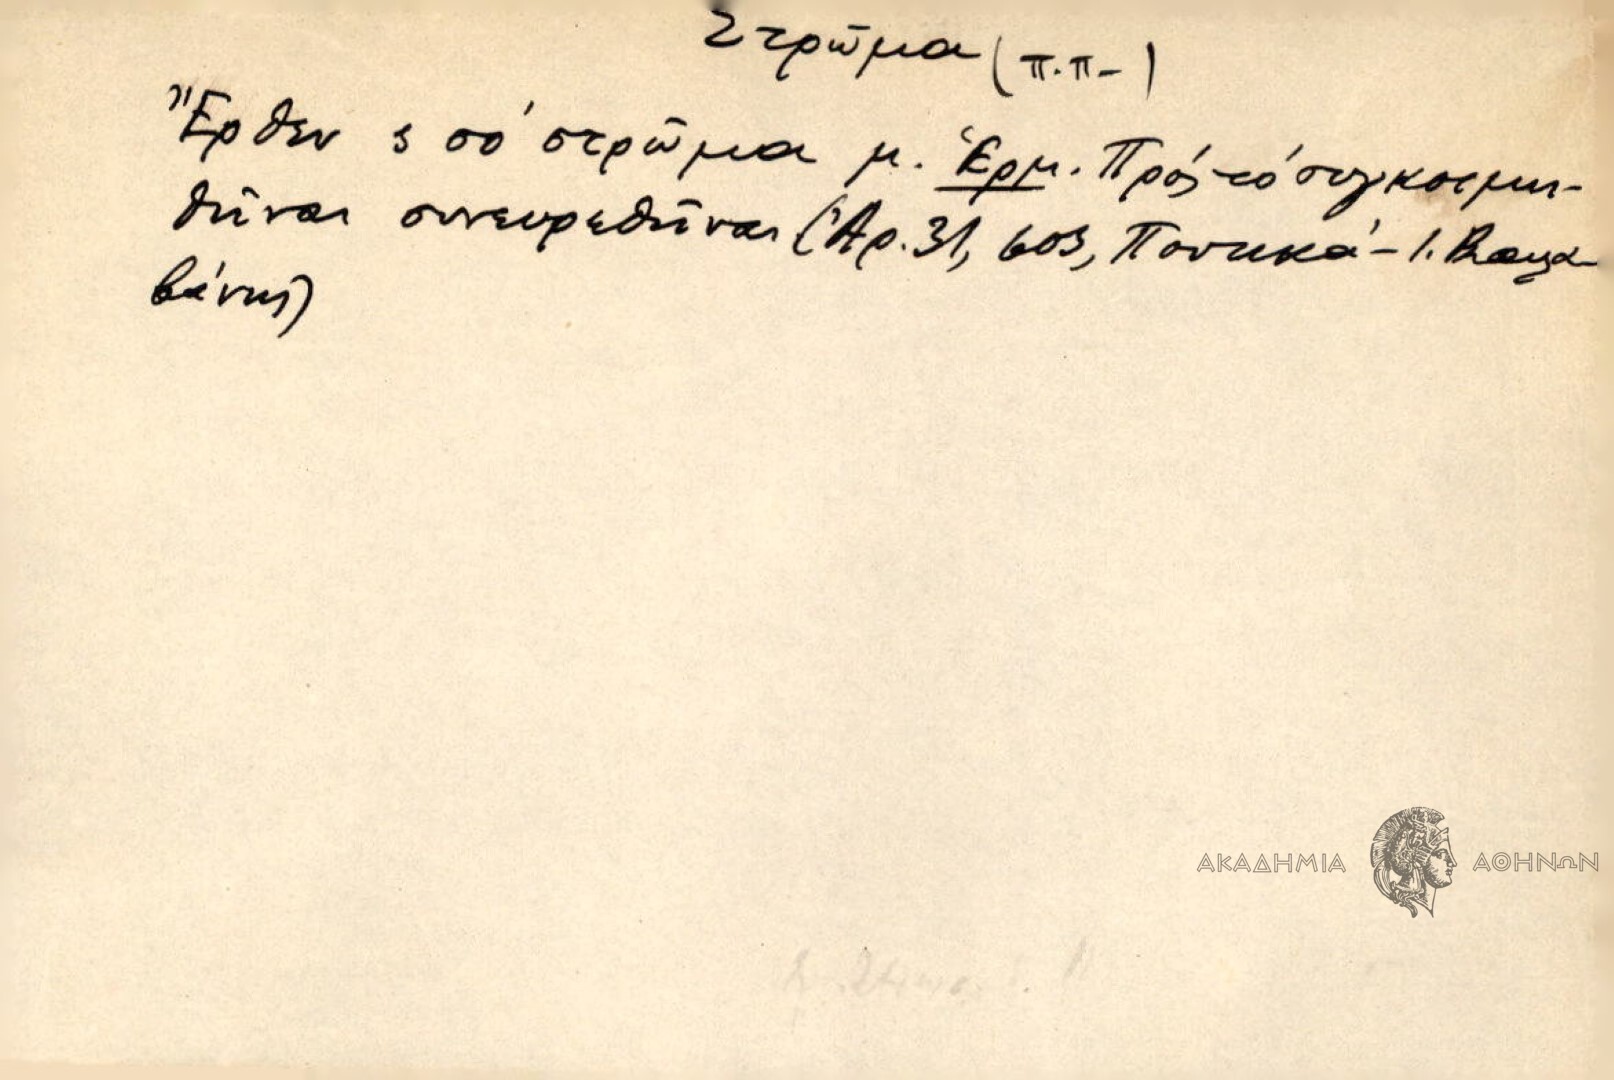 Στρῶμα (π.π-)
Ἔρθεν ς σό στρῶμα μ. Ἑρμ. Πρός τό συγκοιμη-
θῆναι συνευρεθῆναι (Ἀρ. 31, 603, Ποντικά - Ι. Βαλα-
βάνης)
ΑΚΑΔΗΜΙΑ ΑΘΗΝΩΝ